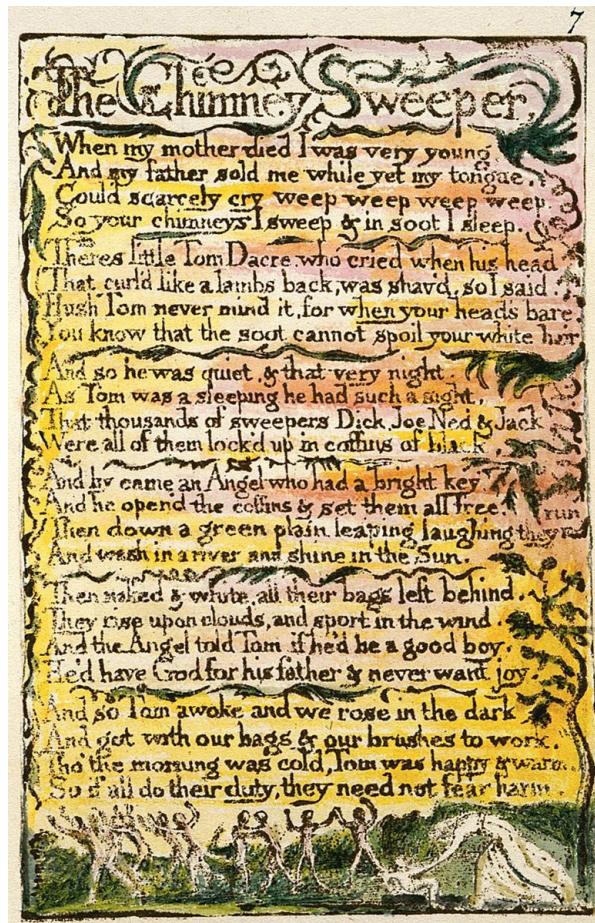 7
The Chimney Sweeper.
When my mother died I was very young,
And my father sold me while yet my tongue,
Could scarcely cry weep weep weep weep.
So your chimneys I sweep & in soot I sleep.
Theres little Tom Dacre, who cried when his head
That curl'd like a lambs back, was shav'd, so I said.
Hush Tom never mind it, for when your head's bare,
You know that the soot cannot spoil your white hair
And so he was quiet, & that very night.
As Tom was a sleeping he had such a sight,
That thousands of sweepers Dick, Joe, Ned & Jack
Were all of them lock'd up in coffins of black,
And by came an Angel who had a bright key
And he open'd the coffins & set them all free.
Then down a green plain leaping laughing they run
And wash in a river and shine in the Sun.
Then naked & white, all their bags left behind,
They rise upon clouds, and sport in the wind.
And the Angel told Tom, if he'd be a good boy,
He'd have God for his father & never want joy.
And so Tom awoke and we rose in the dark
And got with our bags & our brushes to work.
Tho' the morning was cold, Tom was happy & warm.
So if all do their duty, they need not fear harm.